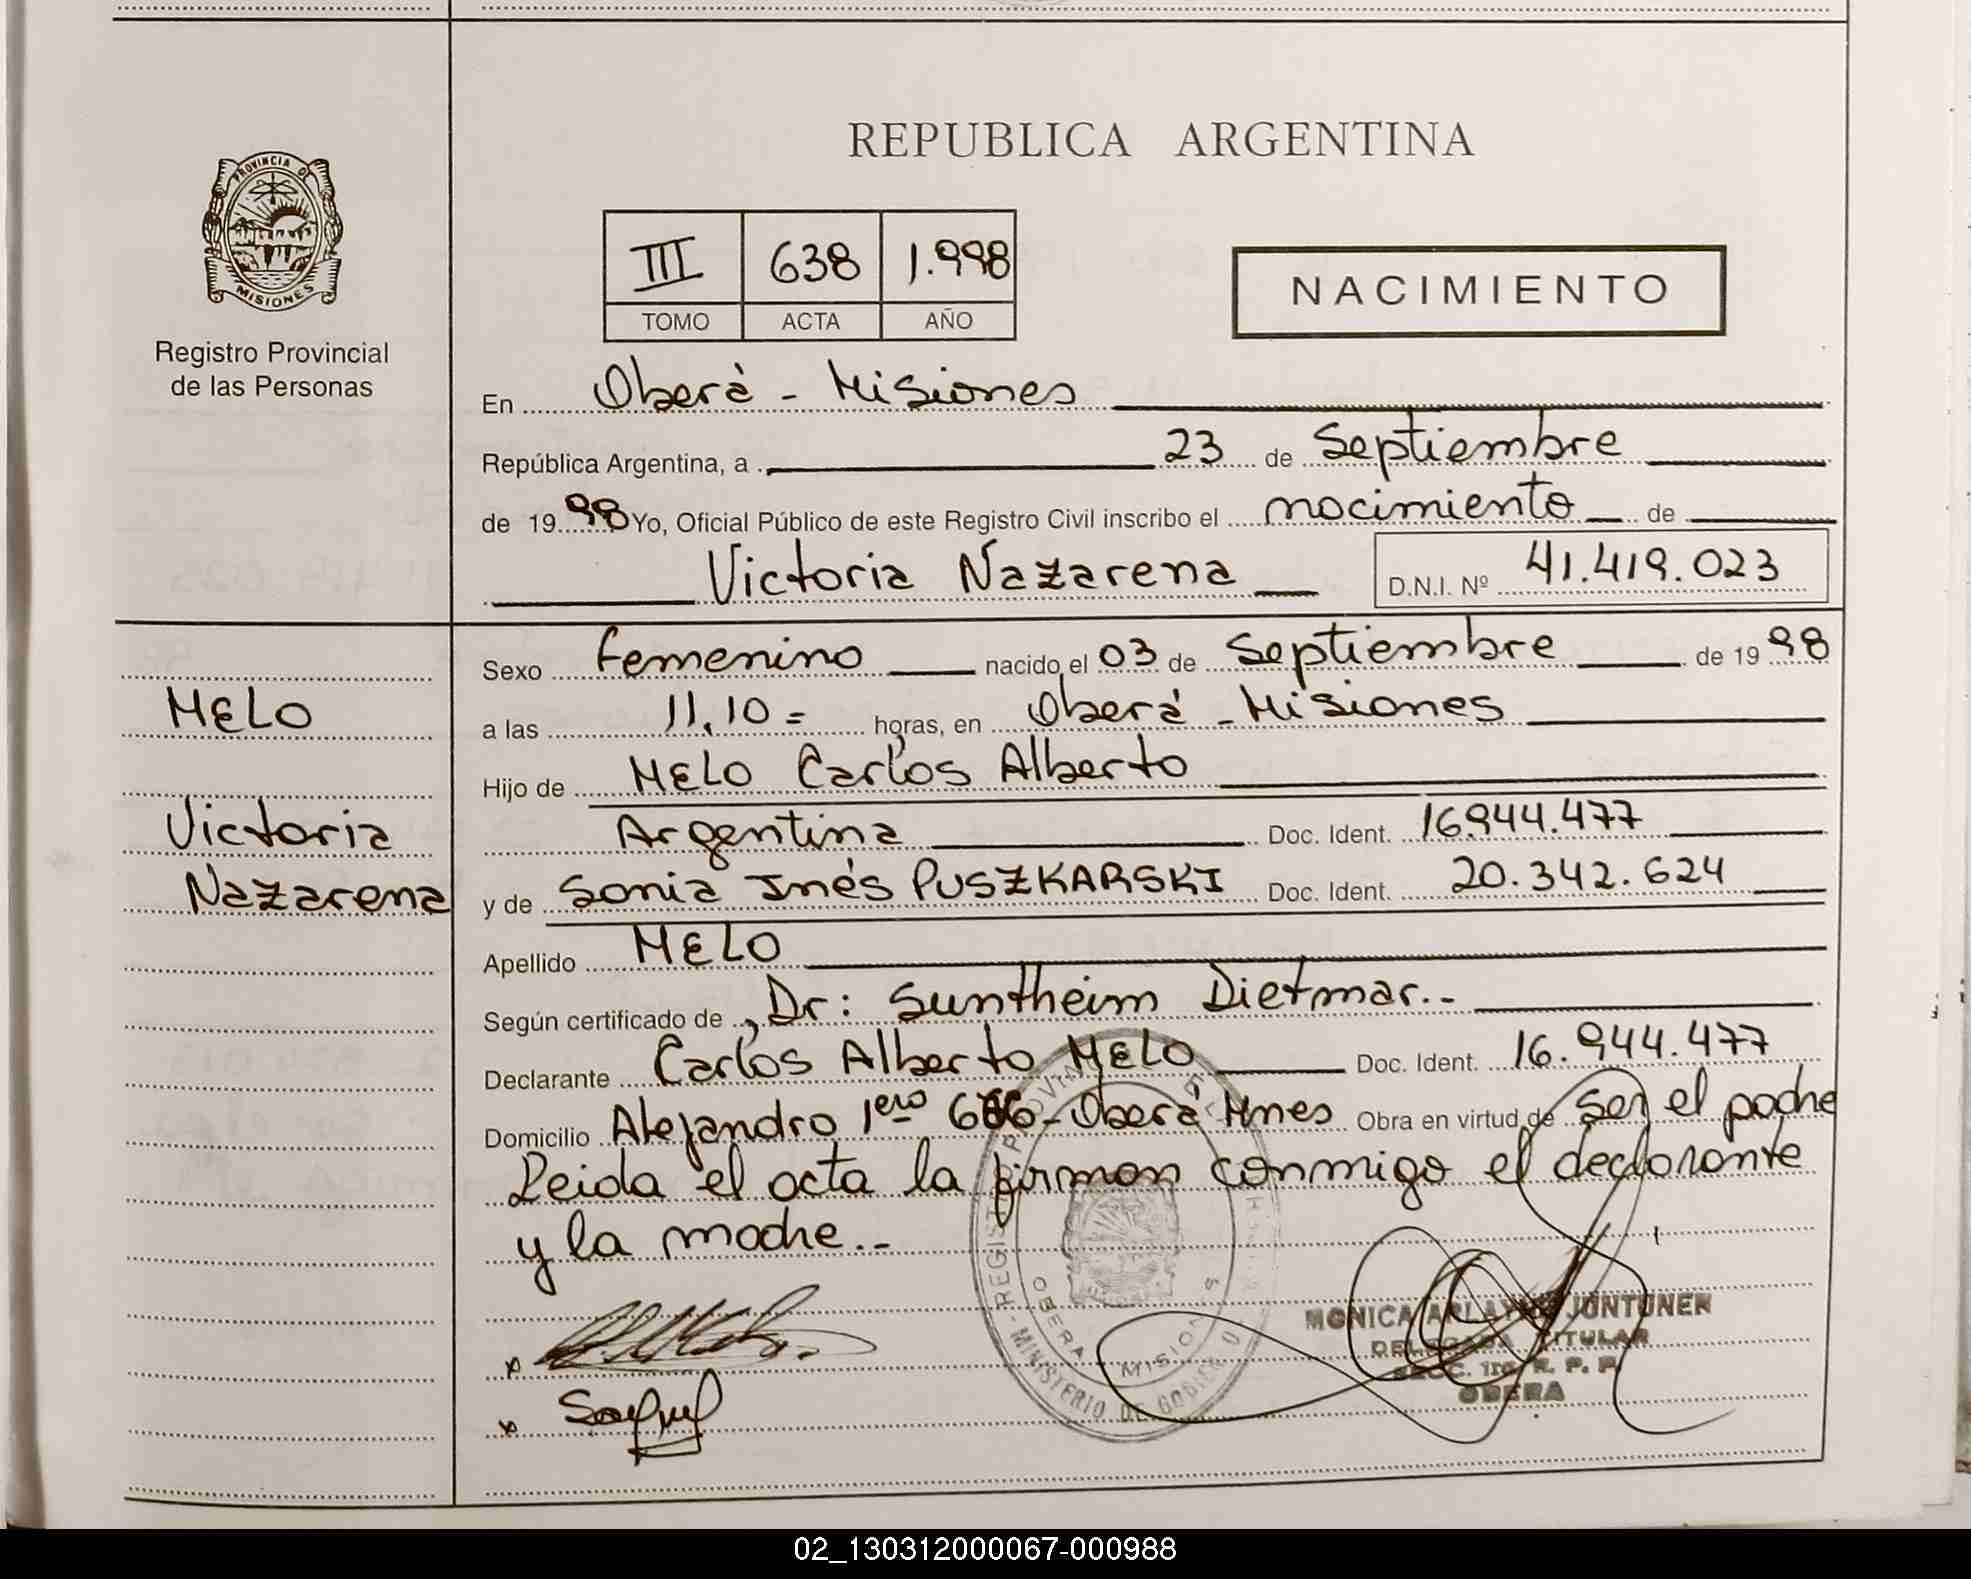 REPUBLICA ARGENTINA
PROVINCIA DE
MISIONES
Registro Provincial
de las Personas
III 638 1.998
TOMO ACTA AÑO
NACIMIENTO
En Oberá - Misiones
República Argentina, a 23 de Septiembre
de 1998 Yo, Oficial Público de este Registro Civil inscribo el nacimiento de
Victoria Nazarena D.N.I. Nº 41.419.023
MELO
Victoria
Nazarena
Sexo femenino nacido el 03 de Septiembre de 1998
a las 11,10= horas, en Oberá - Misiones
Hijo de MELO Carlos Alberto
Argentina Doc. Ident. 16.944.477
y de Sonia Inés PUSZKARSKI Doc. Ident. 20.342.624
Apellido MELO
Según certificado de Dr: Suntheim Dietmar.-
Declarante Carlos Alberto MELO Doc. Ident. 16.944.477
Domicilio Alejandro 1ero - Oberá Mnes Obra en virtud de ser el padre
Leida el acta la firman conmigo el declarante
y la madre.-
OBERA MISIONES
MINISTERIO DE GOBIERNO
MONICA JUNTUNEN
DELEGADA TITULAR
SECC. 1ra. R. P. P.
OBERA
02_130312000067-000988